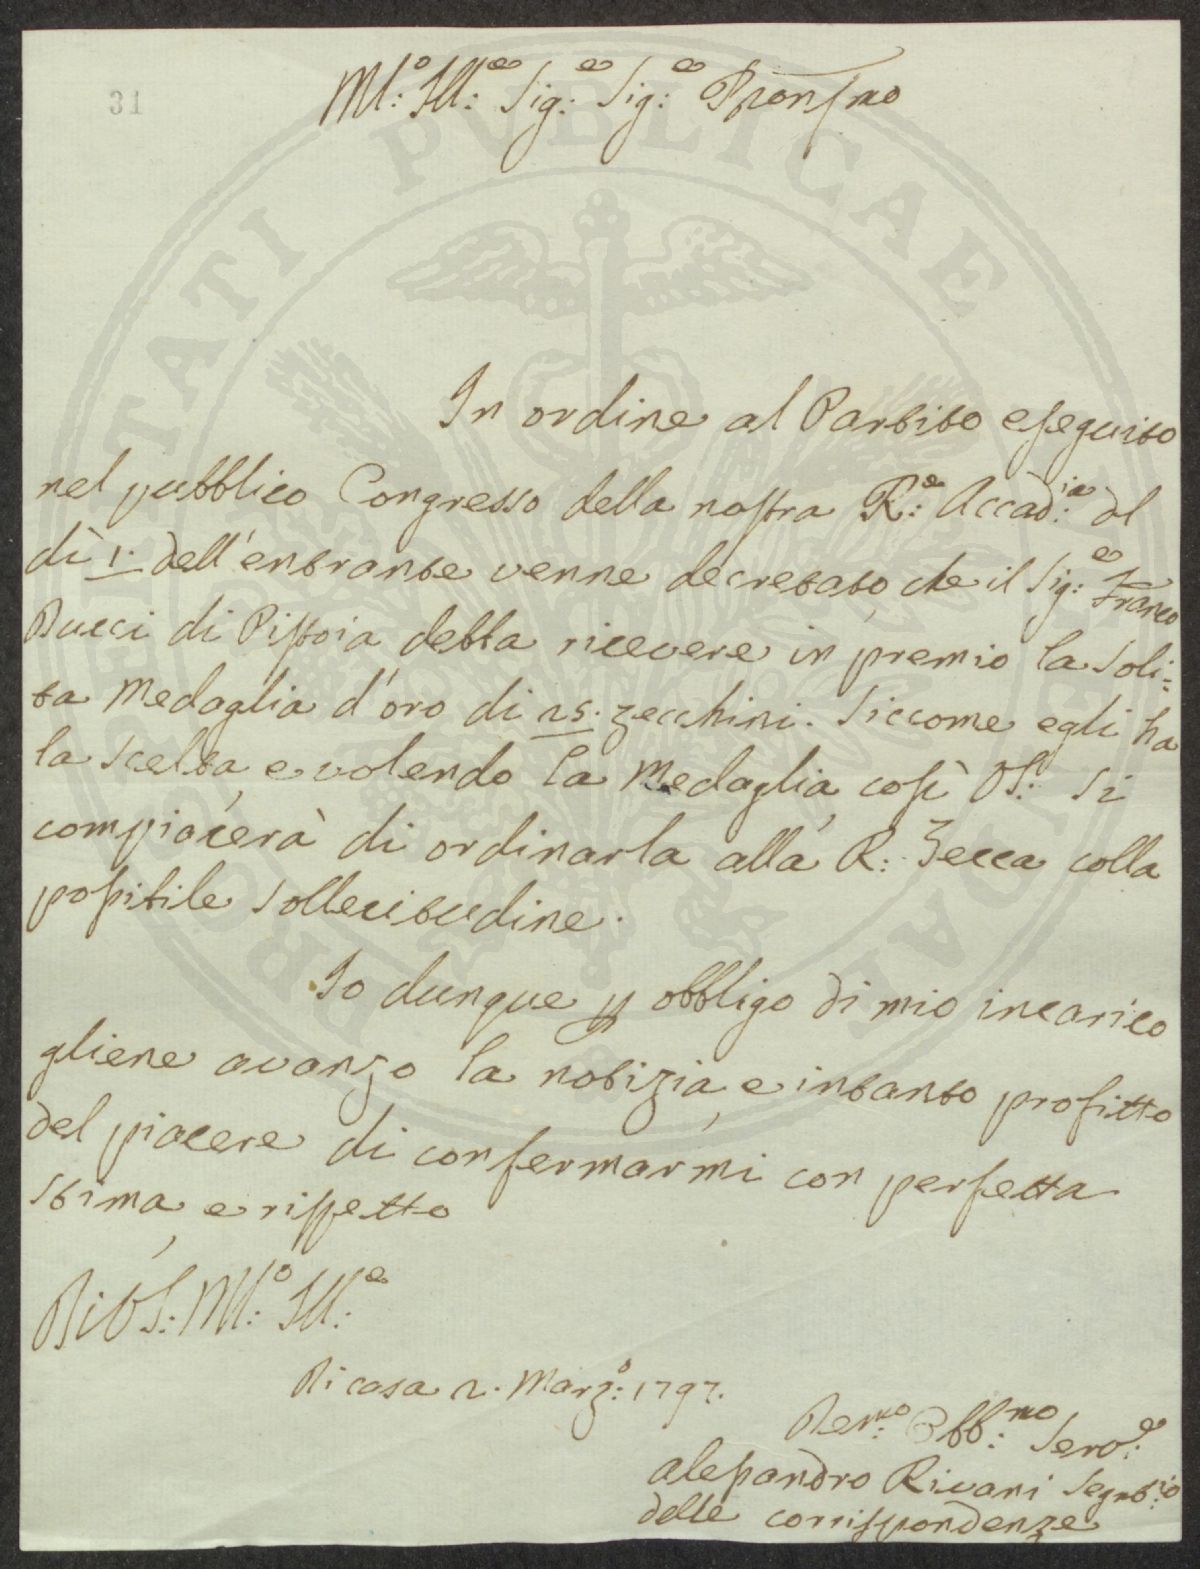 31
Ml:o Ill:e Sig:e Sig:e Pron Smo
In ordine al Partito eseguito
nel pubblico Congresso della nostra R:e Accad:ia al
dì 1: dell'entrante venne decretato che il Sig:e Franco
Bucci di Pistoia debba ricevere in premio la soli=
ta Medaglia d'oro di 25. zecchini. Siccome egli ha
la scelta, e volendo la Medaglia, così VS: si
compiacerà di ordinarla alla R: Zecca colla
possibile sollecitudine.
Io dunque p obbligo di mio incarico
gliene avanzo la notizia, e intanto profitto
del piacere di confermarmi con perfetta
stima, e rispetto
Di VS: Ml:o Ill:e
Di casa 2. Marz:o 1797.
Dev:mo Obb:mo Serv:e
Alessandro Rivani Segret:io
delle corrispondenze